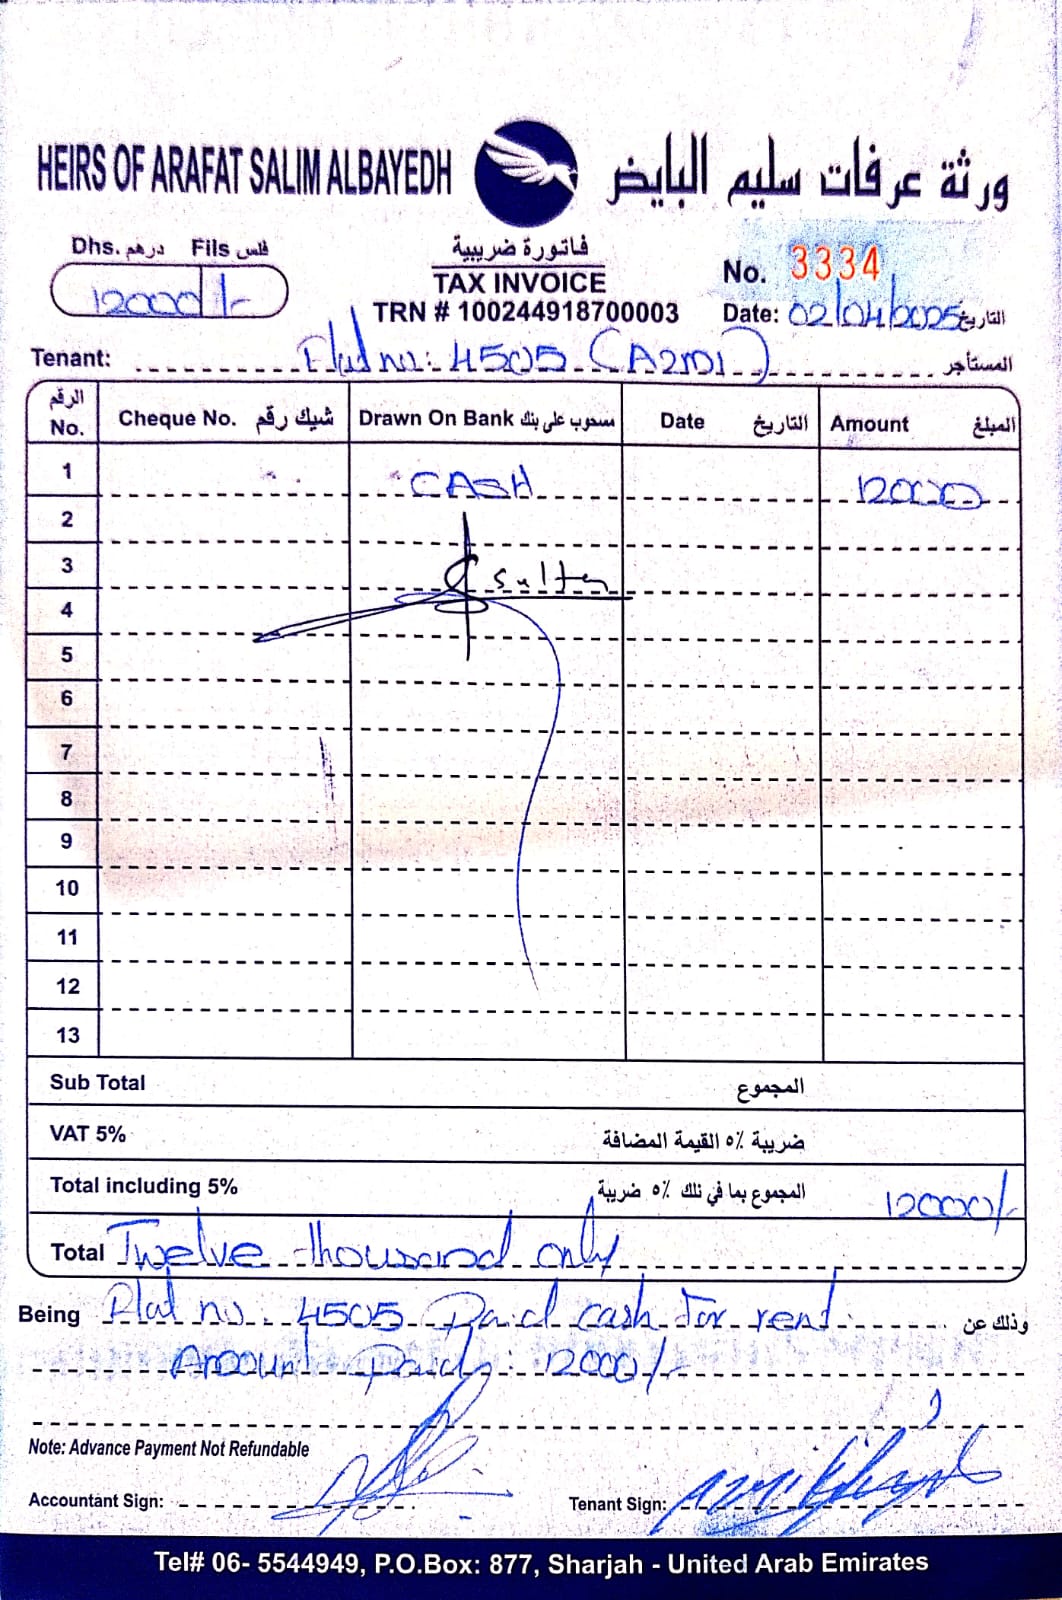 HEIRS OF ARAFAT SALIM ALBAYEDH
ورثة عرفات سليم البايض
Dhs. درهم Fils فلس
12000/-
فاتورة ضريبية
TAX INVOICE
TRN # 100244918700003
No. 3334
Date: 02/04/2025 التاريخ
Tenant: Flat no: 4505 المستأجر
الرقم No. Cheque No. شيك رقم Drawn On Bank مسحوب على بنك Date التاريخ Amount المبلغ
1 CASH 12000
2
3
4
5
6
7
8
9
10
11
12
13
Sub Total المجموع
VAT 5% ضريبة ٥٪ القيمة المضافة
Total including 5% المجموع بما في ذلك ٥٪ ضريبة 12000/-
Total Twelve thousand only
Being Flat no: 4505 Paid cash for rent. وذلك عن
Amount Paid: 12000/-
Note: Advance Payment Not Refundable
Accountant Sign:
Tenant Sign:
Tel# 06- 5544949, P.O.Box: 877, Sharjah - United Arab Emirates